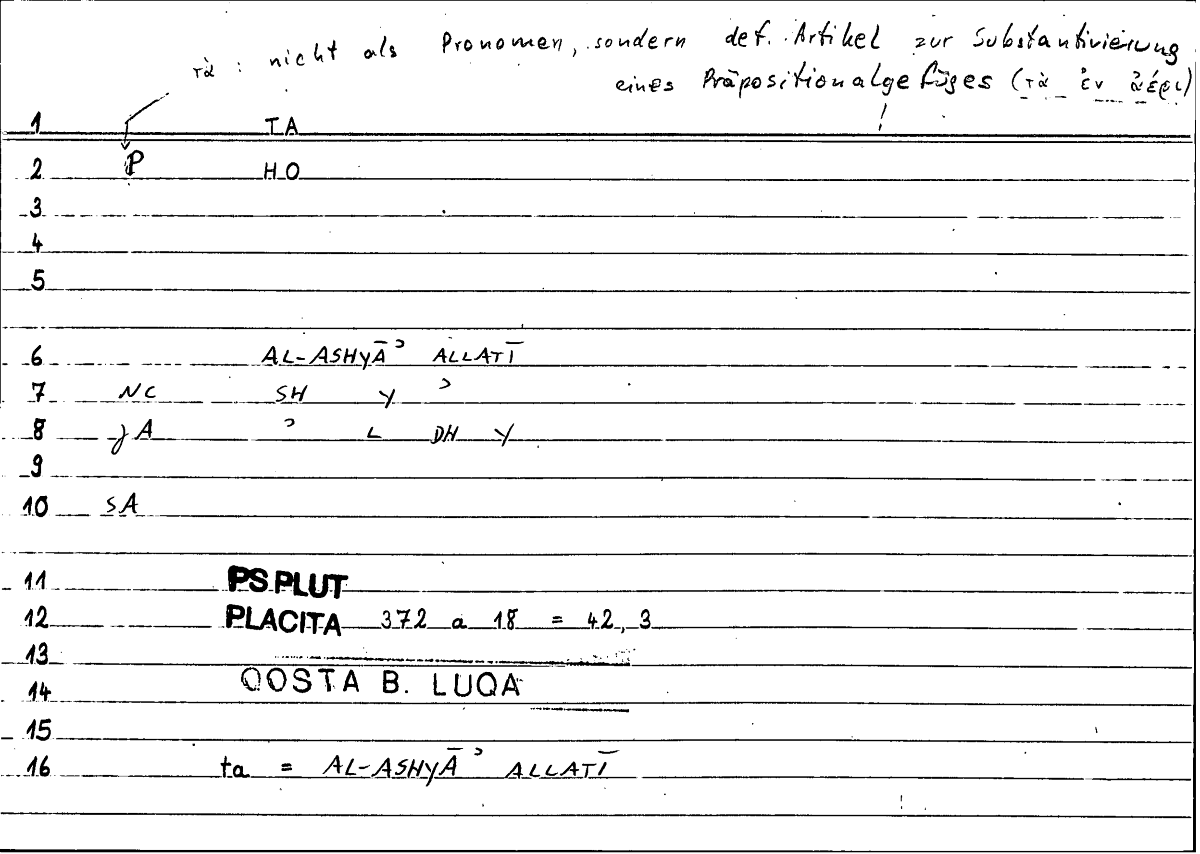 τὰ : nicht als Pronomen, sondern def. Artikel zur Substantivierung
eines Präpositionalgefüges (τὰ ἐν ἀέρι)
1 TA
2 P HO
3
4
5
6 AL-ASHYĀʾ ALLATĪ
7 NC SH Y ʾ
8 JA ʾ L DH Y
9
10 SA
11 PS.PLUT
12 PLACITA 372 a 18 = 42,3
13
14 QOSTA B. LUQA
15
16 ta = AL-ASHYĀʾ ALLATĪ